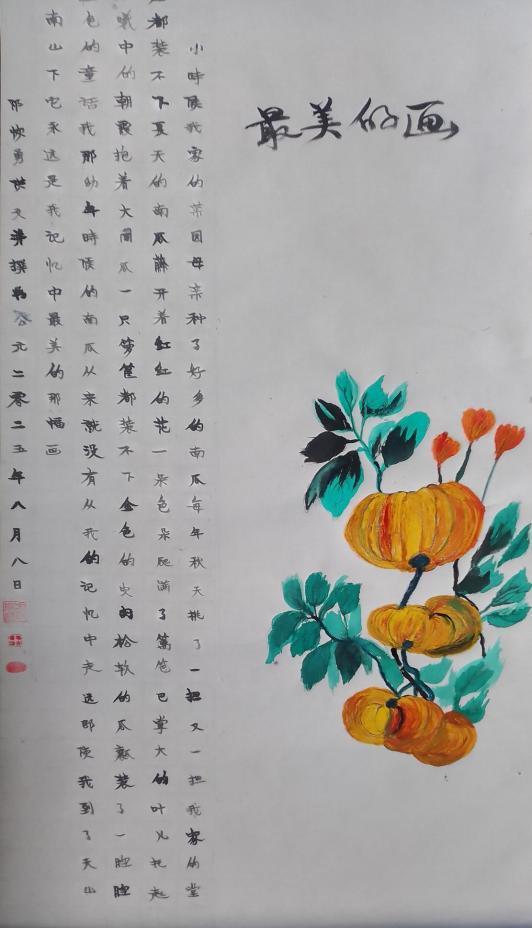 最美的画
小時候我家的菜园母亲种了好多的南瓜每年秋天挑了一担又一担我家的堂
都装不下夏天的南瓜藤开着红红的花一朵色朵爬满了篱笆巴掌大的叶儿托起
曦中的朝霞抱着大南瓜一只箩筐都装不下金色的松软的瓜瓤装了一腔腔
色的童话我那幼年時候的南瓜从来就没有从我的记忆中走远即使我到了天山
南山下它永远是我记忆中最美的那幅画
邓勇文并撰公元二零二五年八月八日